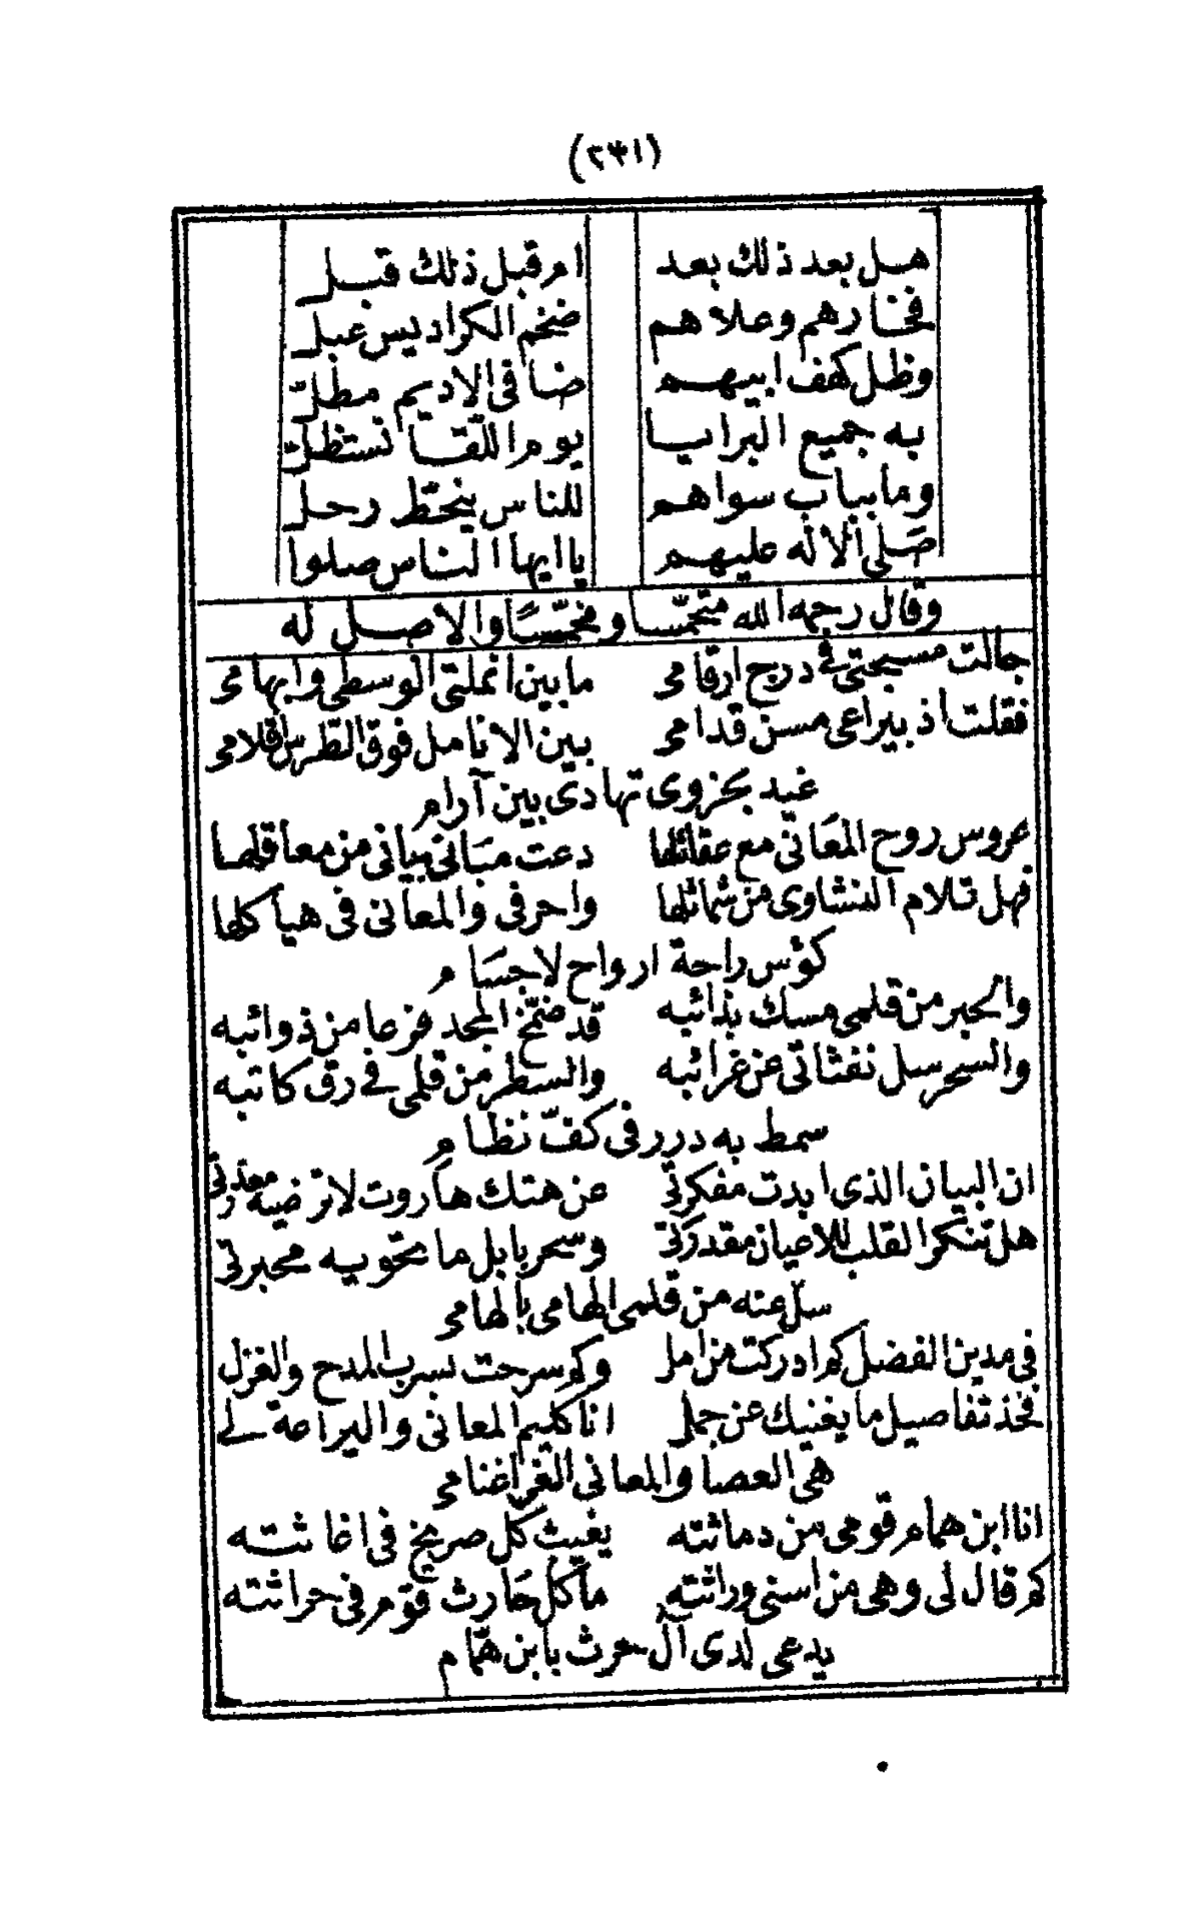 (١٣٢)
هل بعد ذلك بعد ام قبل ذلك قبل
فخارهم وعلاهم ضخم الكراديس عبل
وظل كهف ابيهم ضافى الاديم مظل
به جميع البرايا يوم اللقا تستظل
وما بباب سواهم للناس ينحط رحل
صلى الاله عليهم يا ايها الناس صلوا
وقال رحمه الله متحمسا ومخمسا والاصل له
جالت مسبحتى فى درج ارقامى مابين انملتى الوسطى وابهامى
فقلت اذ بيراعى مسن قدامى بين الانامل فوق الطرس اقلامى
غيد بحزوى تهادى بين آرام
عروس روح المعانى مع عقائلها دعت مبانى بيانى من معاقلها
فهل تلام النشاوى من شمائلها واحرفى والمعانى فى هياكلها
كؤس راحة ارواح لاجسام
والحبر من قلمى مسك بذائبه قد ضمخ المجد فزعا من ذوائبه
والسحر سل نفثاتى عن غرائبه والسطر من قلمى فى رق كاتبه
سمط به درر فى كف نظام
ان البيان الذى ابدت مفكرتى عن هتك هاروت لا ترضيه معذرتى
هل تنكر القلب للاعيان مقدرتى وسحر بابل ما تحويه محبرتى
سل عنه من قلمى الهامى بالهامى
فى مدين الفضل كم ادركت من امل وكم سرحت بسرب المدح والغزل
فخذ تفاصيل ما يغنيك عن جمل انا كليم المعانى واليراعة لى
هى العصا والمعانى الغر اغنامى
انا ابن همام قومى من دماثته يغيث كل صريخ فى اغاثته
كم قال لى وهى من اسنى وراثته ما كل حارث قوم فى حراثته
يدعى لدى آل حرث بابن همام